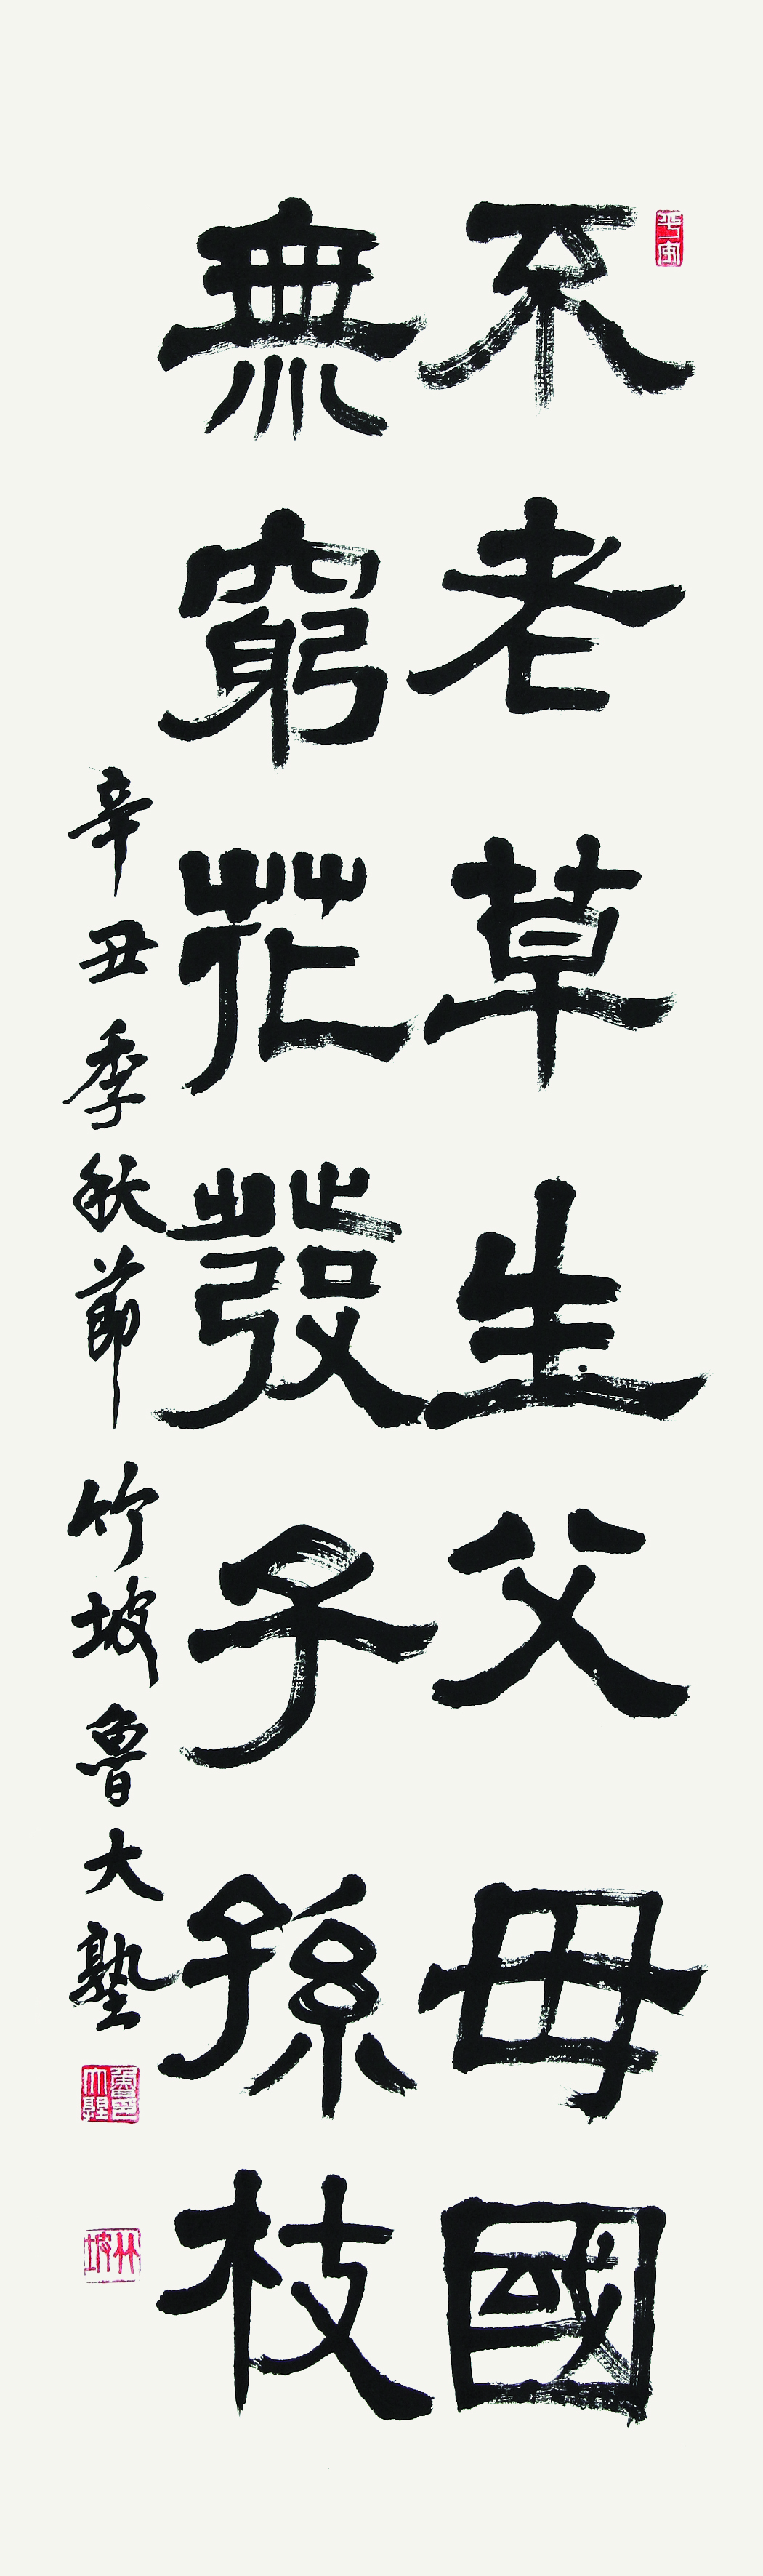 不老草生父母國
無窮花發子孫枝
辛丑季秋節 竹坡魯大壑
竹坡